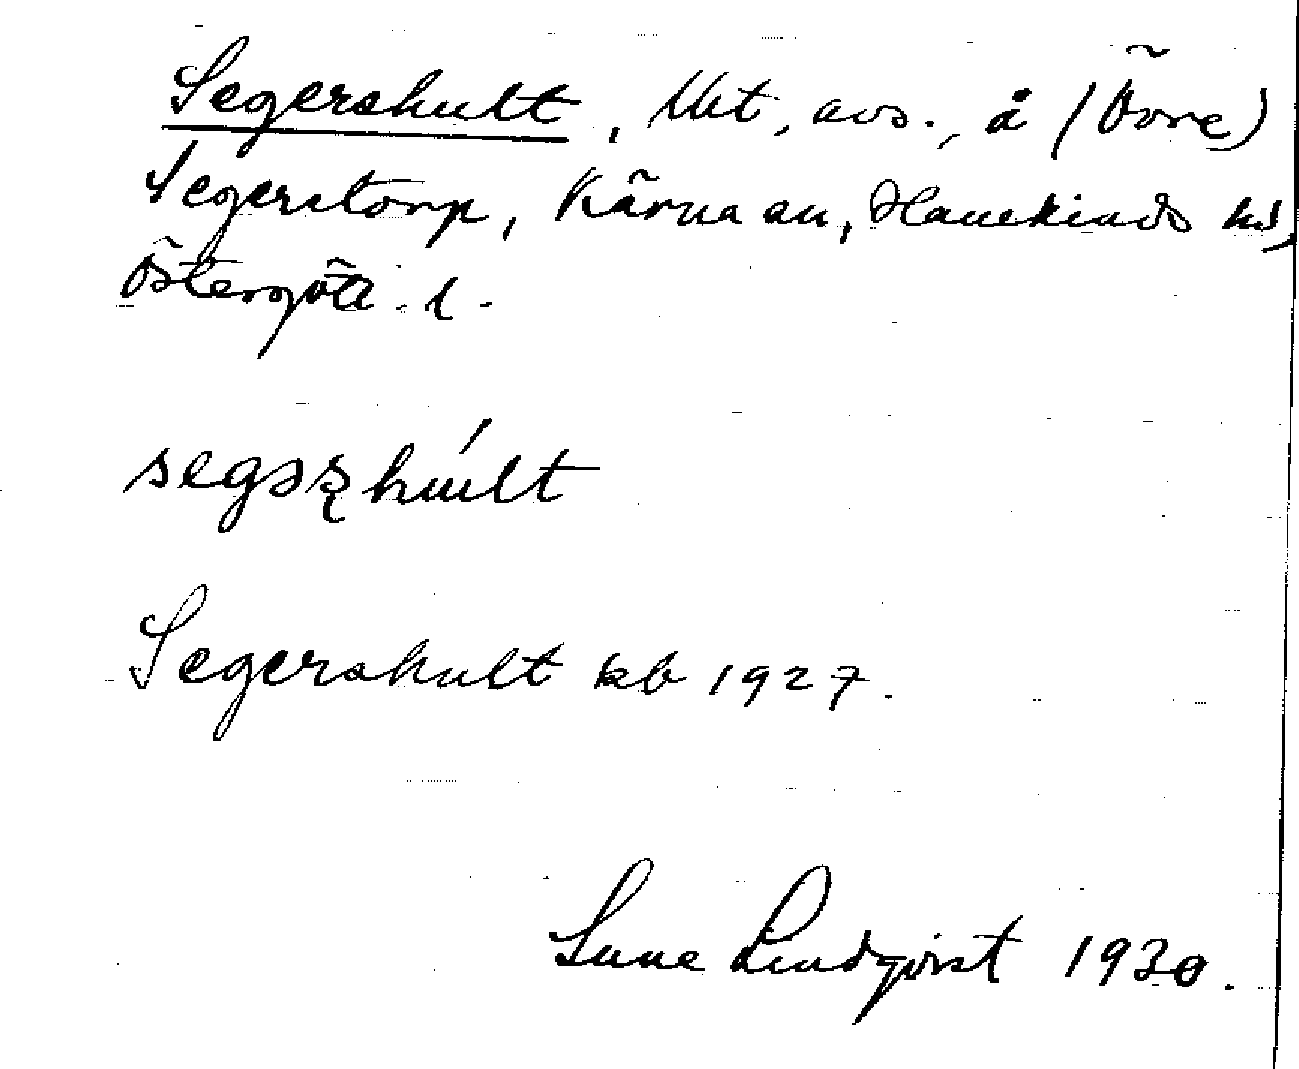 Segershult, lht, avs., å (Övre)
Segerstorp, Kärna sn, Hanekinds hd,
Östergötl. l.
segəʂhúlt
Segershult kb 1927.
Sune Lindqvist 1930.